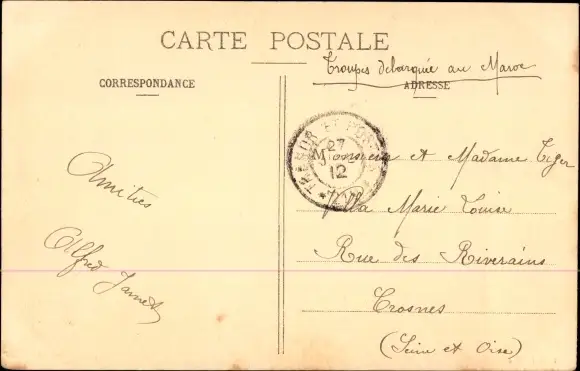 CARTE POSTALE
Troupes débarquée au Maroc
CORRESPONDANCE
ADRESSE
TRESOR ET POSTES
27
12
Monsieur et Madame Tiger
Villa Marie Louise
Amitiés
Rue des Riverains
Alfred
Crosnes
(Seine et Oise)